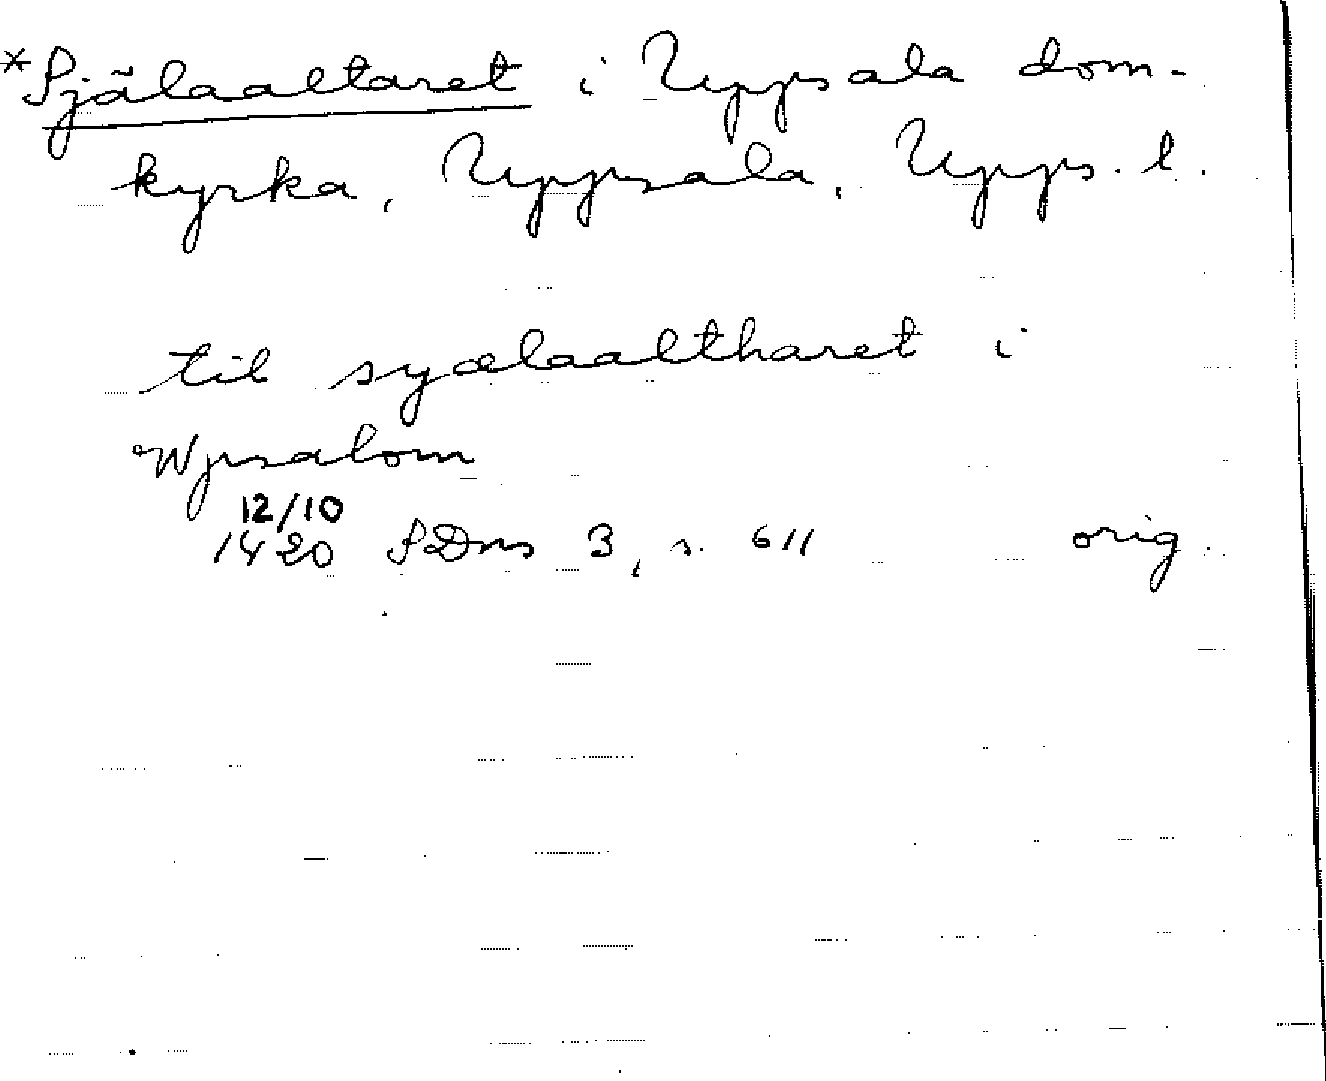 *Själaaltaret i Uppsala dom-
kyrka, Uppsala, Upps. l.
til syælaaltharet i
Wpsalom
12/10
1420 SDns 3, s. 611 orig.